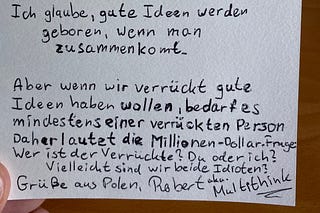 Ich glaube, gute Ideen werden
geboren, wenn man
zusammenkomt.
Aber wenn wir verrückt gute
Ideen haben wollen, bedarf es
mindestens einer verrückten Person
Daher lautet die Millionen-Dollar-Frage:
Wer ist der Verrückte? Du oder ich?
Vielleicht sind wir beide Idioten?
Grüße aus Polen, Robert aka.
Multithink